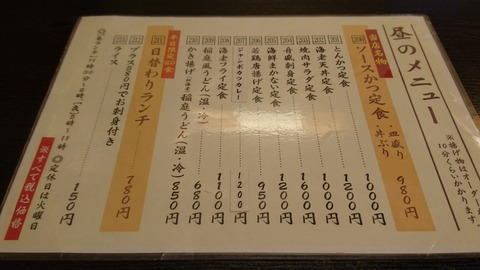 昼のメニュー
※揚げ物はオーダー
10分くらいかかります。
当店名物
200 ソースかつ定食 ・皿盛り ・丼ぶり 980円
201 とんかつ定食 1000円
202 海老天丼定食 1200円
203 焼肉サラダ定食 1000円
204 舟盛刺身定食 1600円
205 海鮮まかない定食 1200円
206 若鶏唐揚げ定食 950円
207 ジャンボカツカレー 1200円
208 海老フライ定食 1100円
209 稲庭風うどん(温・冷) 680円
210 かき揚げ 稲庭うどん(温・冷) 850円
平日限定20食
211 日替わりランチ 780円
212 プラス880円でお刺身付き
213 ライス 150円
◎定休日は火曜日
※すべて税込価格